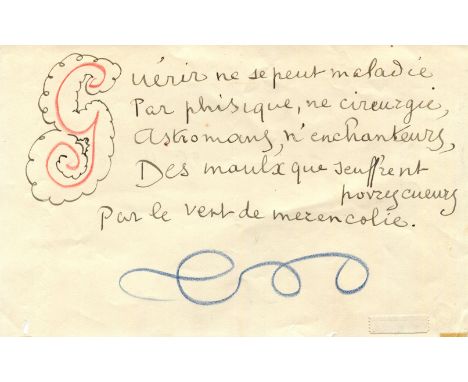 Guérir ne se peut maladie
Par phisique, ne cirurgie,
Astromans, n'enchanteurs,
Des maulx que seuffrent
povres cueurs
Par le vert de merencolie.